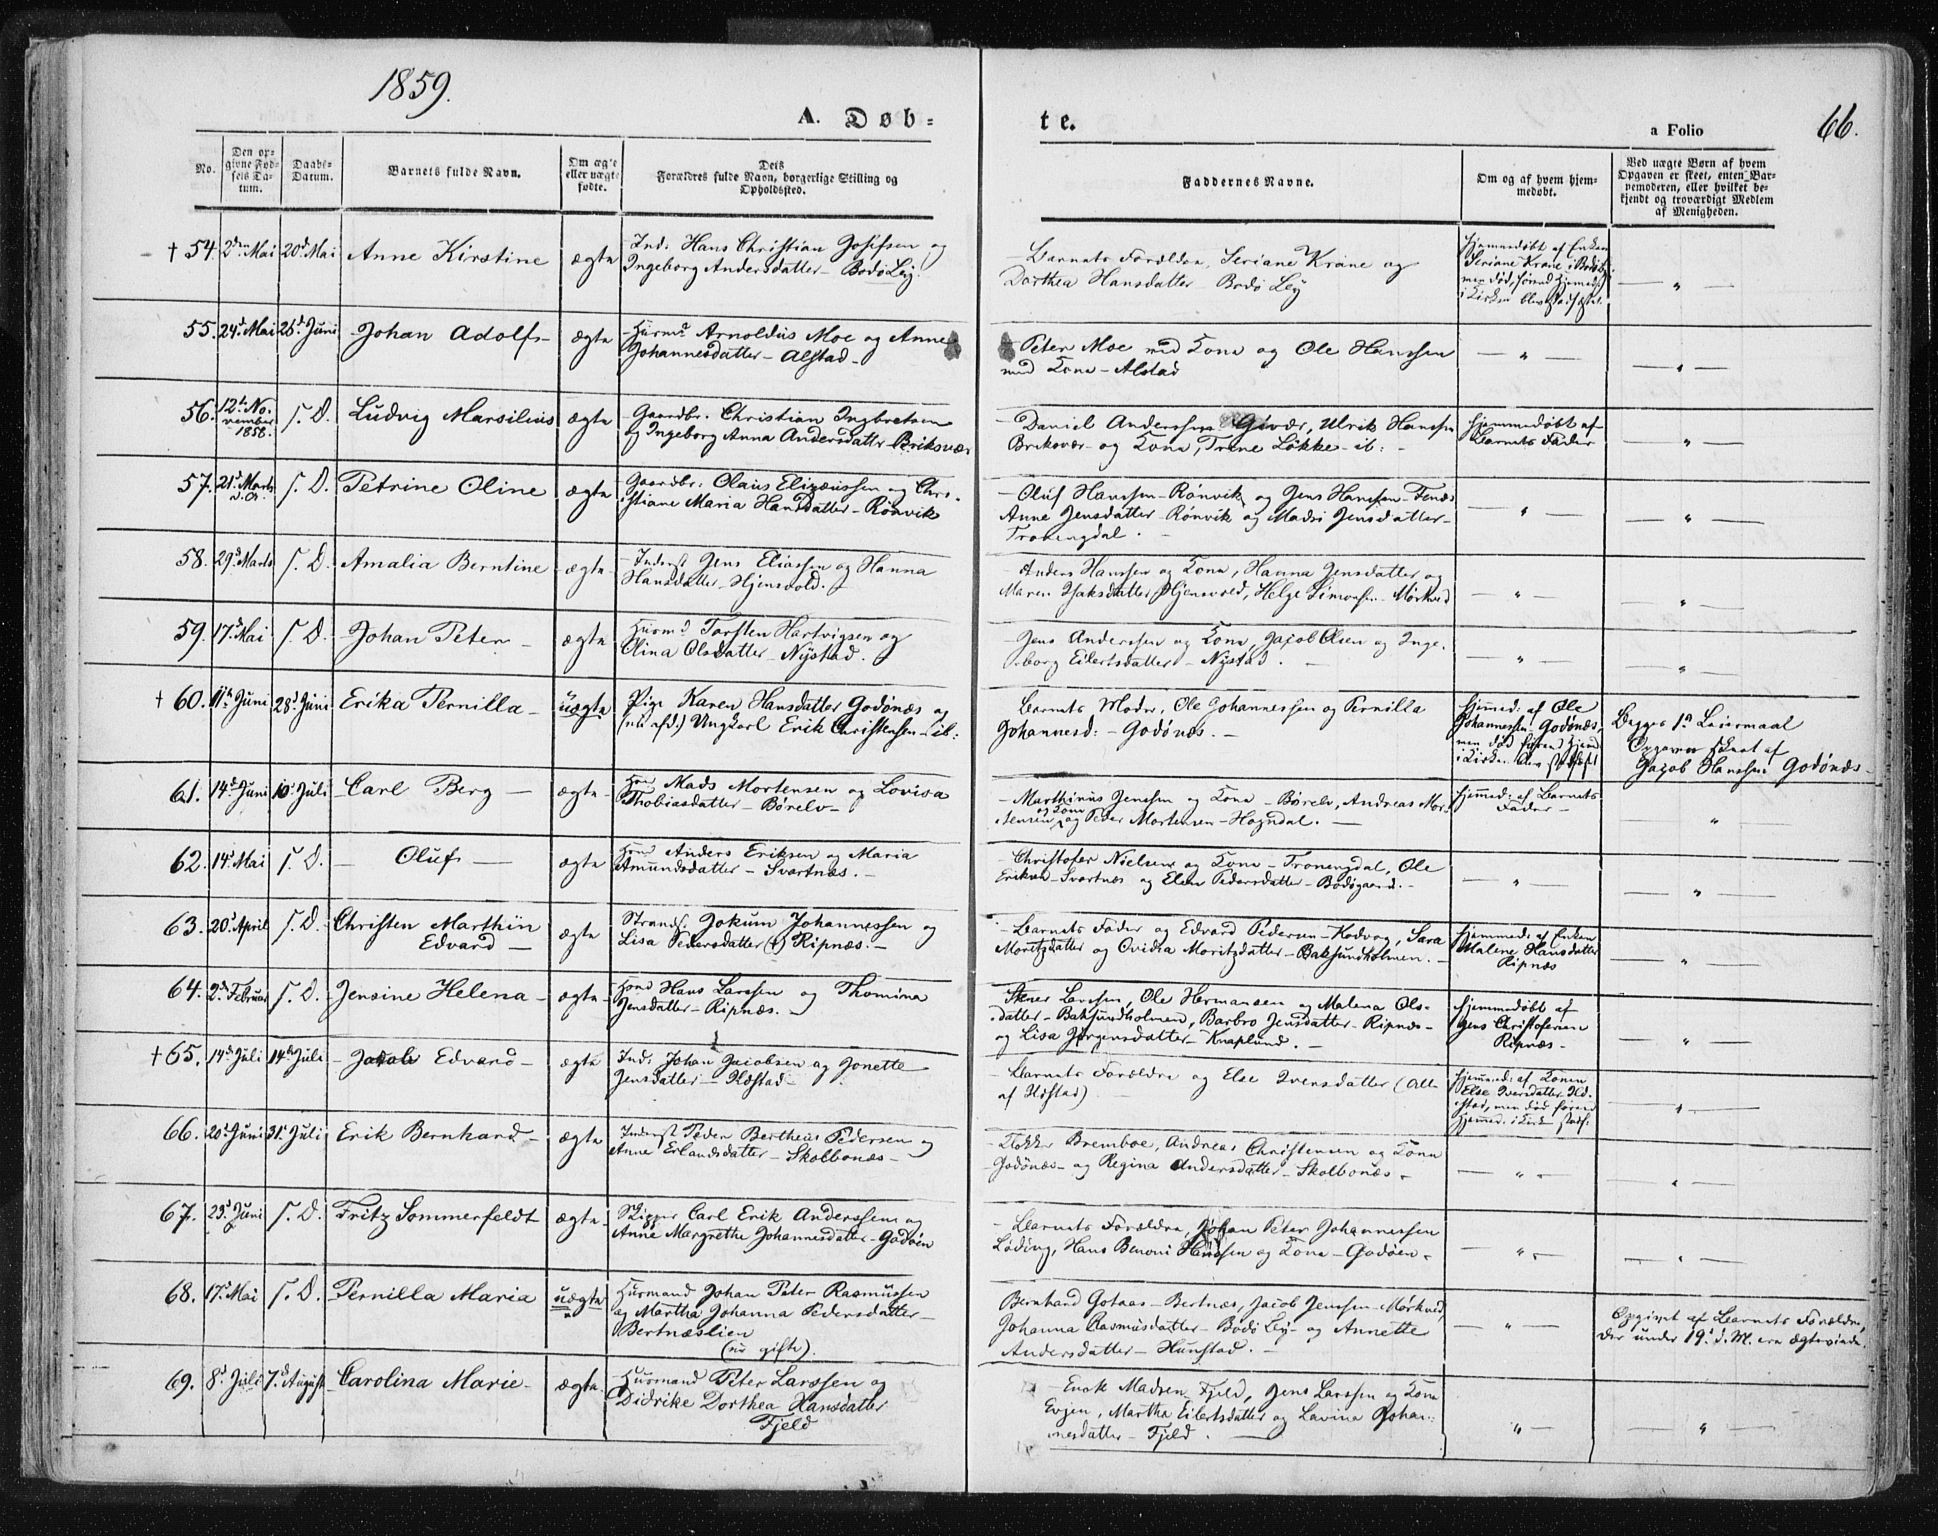 1859.
A. Døb-
te.
a Folio
66.
No.
Den op-
givne Fød-
sels Da-
tum.
Daabs-
Datum.
Barnets fulde Navn.
Om ægte
eller uægte
fødte.
Dets
Forældres fulde Navn, borgerlige Stilling og
Opholdssted.
Faddernes Navne.
Om og af hvem hjem-
medøbt.
Ved uægte Børn af hvem
Opgaven er skeet, enten Bar-
nemoderen, eller hvilket be-
kjendt og troværdigt Medlem
af Menigheden.
† 54. 2den Mai 20d Mai Anne Kirstine ægte
Ind: Hans Christian Josefsen og
Ingeborg Andersdatter - Bodø Ley.
Barnets Forældre, Seriane Krane og
Dorthea Hansdatter - Bodø Ley
Hjemmedøbt af Enken
Seriane Krane i Bodø,
men død, førend Hjemmed:
i Kirken blev stadfæstet.
— " —
55. 24d Mai 26d Juni Johan Adolf - ægte
Huusmd Arnoldus Moe og Anne
Johannesdatter - Alstad -
Peter Moe med Kone og Ole Hanssen
med Kone - Alstad
— " —
— " —
56. 12te No-
vember
1858. s. D. Ludvig Marsilius ægte
Gaardbr. Christian Ingbretsen
og Ingeborg Anna Andersdatter Briksvær
Daniel Anderssen Givær, Ulrik Hanssen
Briksvær og Kone, Trine Løkke ib: -
Hjemmedøbt af
Barnets Fader
— " —
57. 21d Marts
d. A. s. D. Petrine Oline ægte
Gaardbr: Olaus Elizæussen og Chri-
stiane Maria Hansdatter - Rønvik
Oluf Hanssen - Rønvik og Jens Hanssen - Fenes
Anne Jensdatter - Rønvik og Madsi Jensdatter -
Tronengdal. -
— " —
— " —
58. 29d Marts s. D. Amalia Berntine ægte
Inderst Jens Eliassen og Hanna
Hansdatter - Hjensvold.
Anders Hanssen og Kone, Hanna Jensdatter og
Maren Isaksdatter Hjensvold, Helge Simonsen - Mørkved
— " —
— " —
59. 17d Mai s. D. Johan Peter - ægte
Huusmd Torsten Hartvigsen og
Olina Olsdatter - Nystad.
Jens Anderssen og Kone, Jacob Olsen og Inge-
borg Eilertsdatter - Nystad. -
— " —
— " —
† 60. 11te Juni 28d Juni Erika Pernilla - uægte
Pige Karen Hansdatter Godønæs og
(nu afd.) Ungkarl Erik Christensen - ib:
Barnets Moder, Ole Johannessen og Pernilla
Johannesd: - Godønæs. -
Hjemmed: af Ole
Johannessen Godønæs,
men død førend Hjemd:
i Kirken blev stadfæst
Begges 1ste Leiermaal
Opgaven skeet af
Jacob Hanssen Godønæs -
61. 14d Juni 10d Juli Carl Berg - ægte
Mads Mortensen og Lovisa
Thobiasdatter - Børelv -
Marthinus Jenssen og Kone - Børelv, Andreas Mor-
tensen og Kone og Peder Mortensen - Hogndal. -
Hjemmed: af Barnets
Fader -
"
62. 14d Mai s. D. — Oluf — ægte
Anders Eriksen og Maria
Amundsdatter - Svartnæs. -
Christofer Nielsen og Kone - Tronengdal, Ole
Eriksen - Svartnæs og Elen Pedersdatter - Bodøgaard. -
— " —
"
63. 20d April s. D. Christen Marthin
Edvard - ægte
Strands: Jokum Johannessen og
Lisa Pedersdatter (†) Ripnæs. -
Barnets Fader og Edvard Pedersen - Kodvag, Sara
Moritzdatter og Ovidia Moritzdatter - Baksundholmen. -
Hjemmed: af Enken
Malene Hansdatter
Ripnæs
— " —
64. 2den Februar s. D. Jensine Helena - ægte
Hans Larssen og Thomina
Jensdatter - Ripnæs. -
Stener Larssen, Ole Hermansen og Malena Ols-
datter - Baksundholmen, Barbro Jensdatter - Ripnæs -
og Lisa Jørgensdatter - Knaplund. -
Hjemmedøbt af
Jens Christofersen
Ripnæs -
— " —
† 65. 14d Juli 14de Juli - Jakob Edvard - ægte
Ind: Johan Jacobsen og Jonette
Jensdatter - Ildstad -
Barnets Forældre og Else Iversdatter (Alle
af Ildstad)
Hjemmed: af Konen
Else Iversdatter Ild-
stad, men død førend
Hjemmed: i Kirk stadf:
— " —
66. 20d Juni 31d Juli Erik Bernhard - ægte
Inderst Peder Bertheus Pedersen og
Anne Erlandsdatter - Skolbonæs -
Klokker Bremboe, Andreas Christensen og Kone
Godønæs - og Regina Andersdatter - Skolbonæs -
— " —
"
67. 23d Juni s. D. Fritz Sommerfeldt ægte
Skipper Carl Erik Anderssen og
Anne Margrethe Johannesdatter - Godøen
Barnets Forældre, Johan Peter Johannessen
Løding, Hans Benoni Knudsen og Kone - Godøen -
— " —
"
68. 17d Mai s. D. Pernilla Maria uægte
Huusmand Johan Peter Rasmussen
og Martha Johanna Pedersdatter -
Bertnæslien
(nu gifte).
Bernhard Gotaas - Bertnæs, Jacob Jenssen - Mørkved,
Johanna Rasmusdatter - Bodø Ley - og Annette
Andersdatter - Hunstad. -
— " —
Opgivet af Barnets Forældre,
der under 19d d. M. ere ægteviede.
69. 8d Juli 7d August Carolina Marie - ægte
Huusmand Peter Larssen og
Didrike Dorthea Hansdatter
Fjeld
Enok Madsen Fjeld, Jens Larssen og Kone
Evjen, Martha Eilertsdatter og Lavina Johan-
nesdatter - Fjeld.
" —
— " —